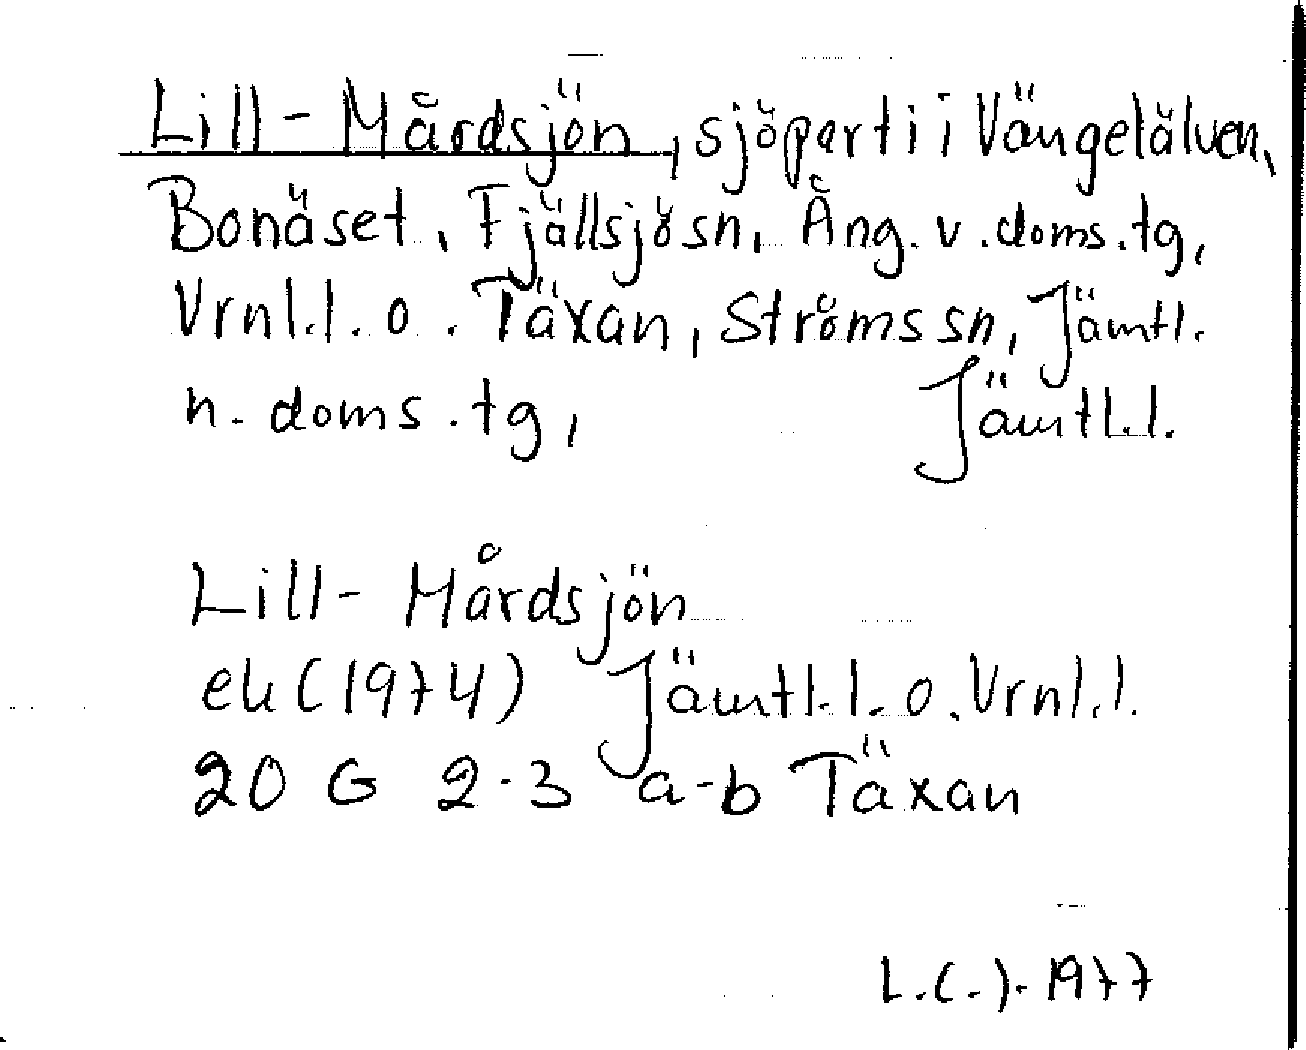 Lill-Mårdsjön, sjöparti i Vängelälven,
Bonäset, Fjällsjö sn, Ång. v. doms.tg,
Vrnl.l. o. Täxan, Ströms sn, Jämtl.
n. doms.tg, Jämtl.l.
Lill-Mårdsjön
ek (1974) Jämtl.l. o. Vrnl.l.
20 G 2-3 a-b Täxan
L.(-). 1977